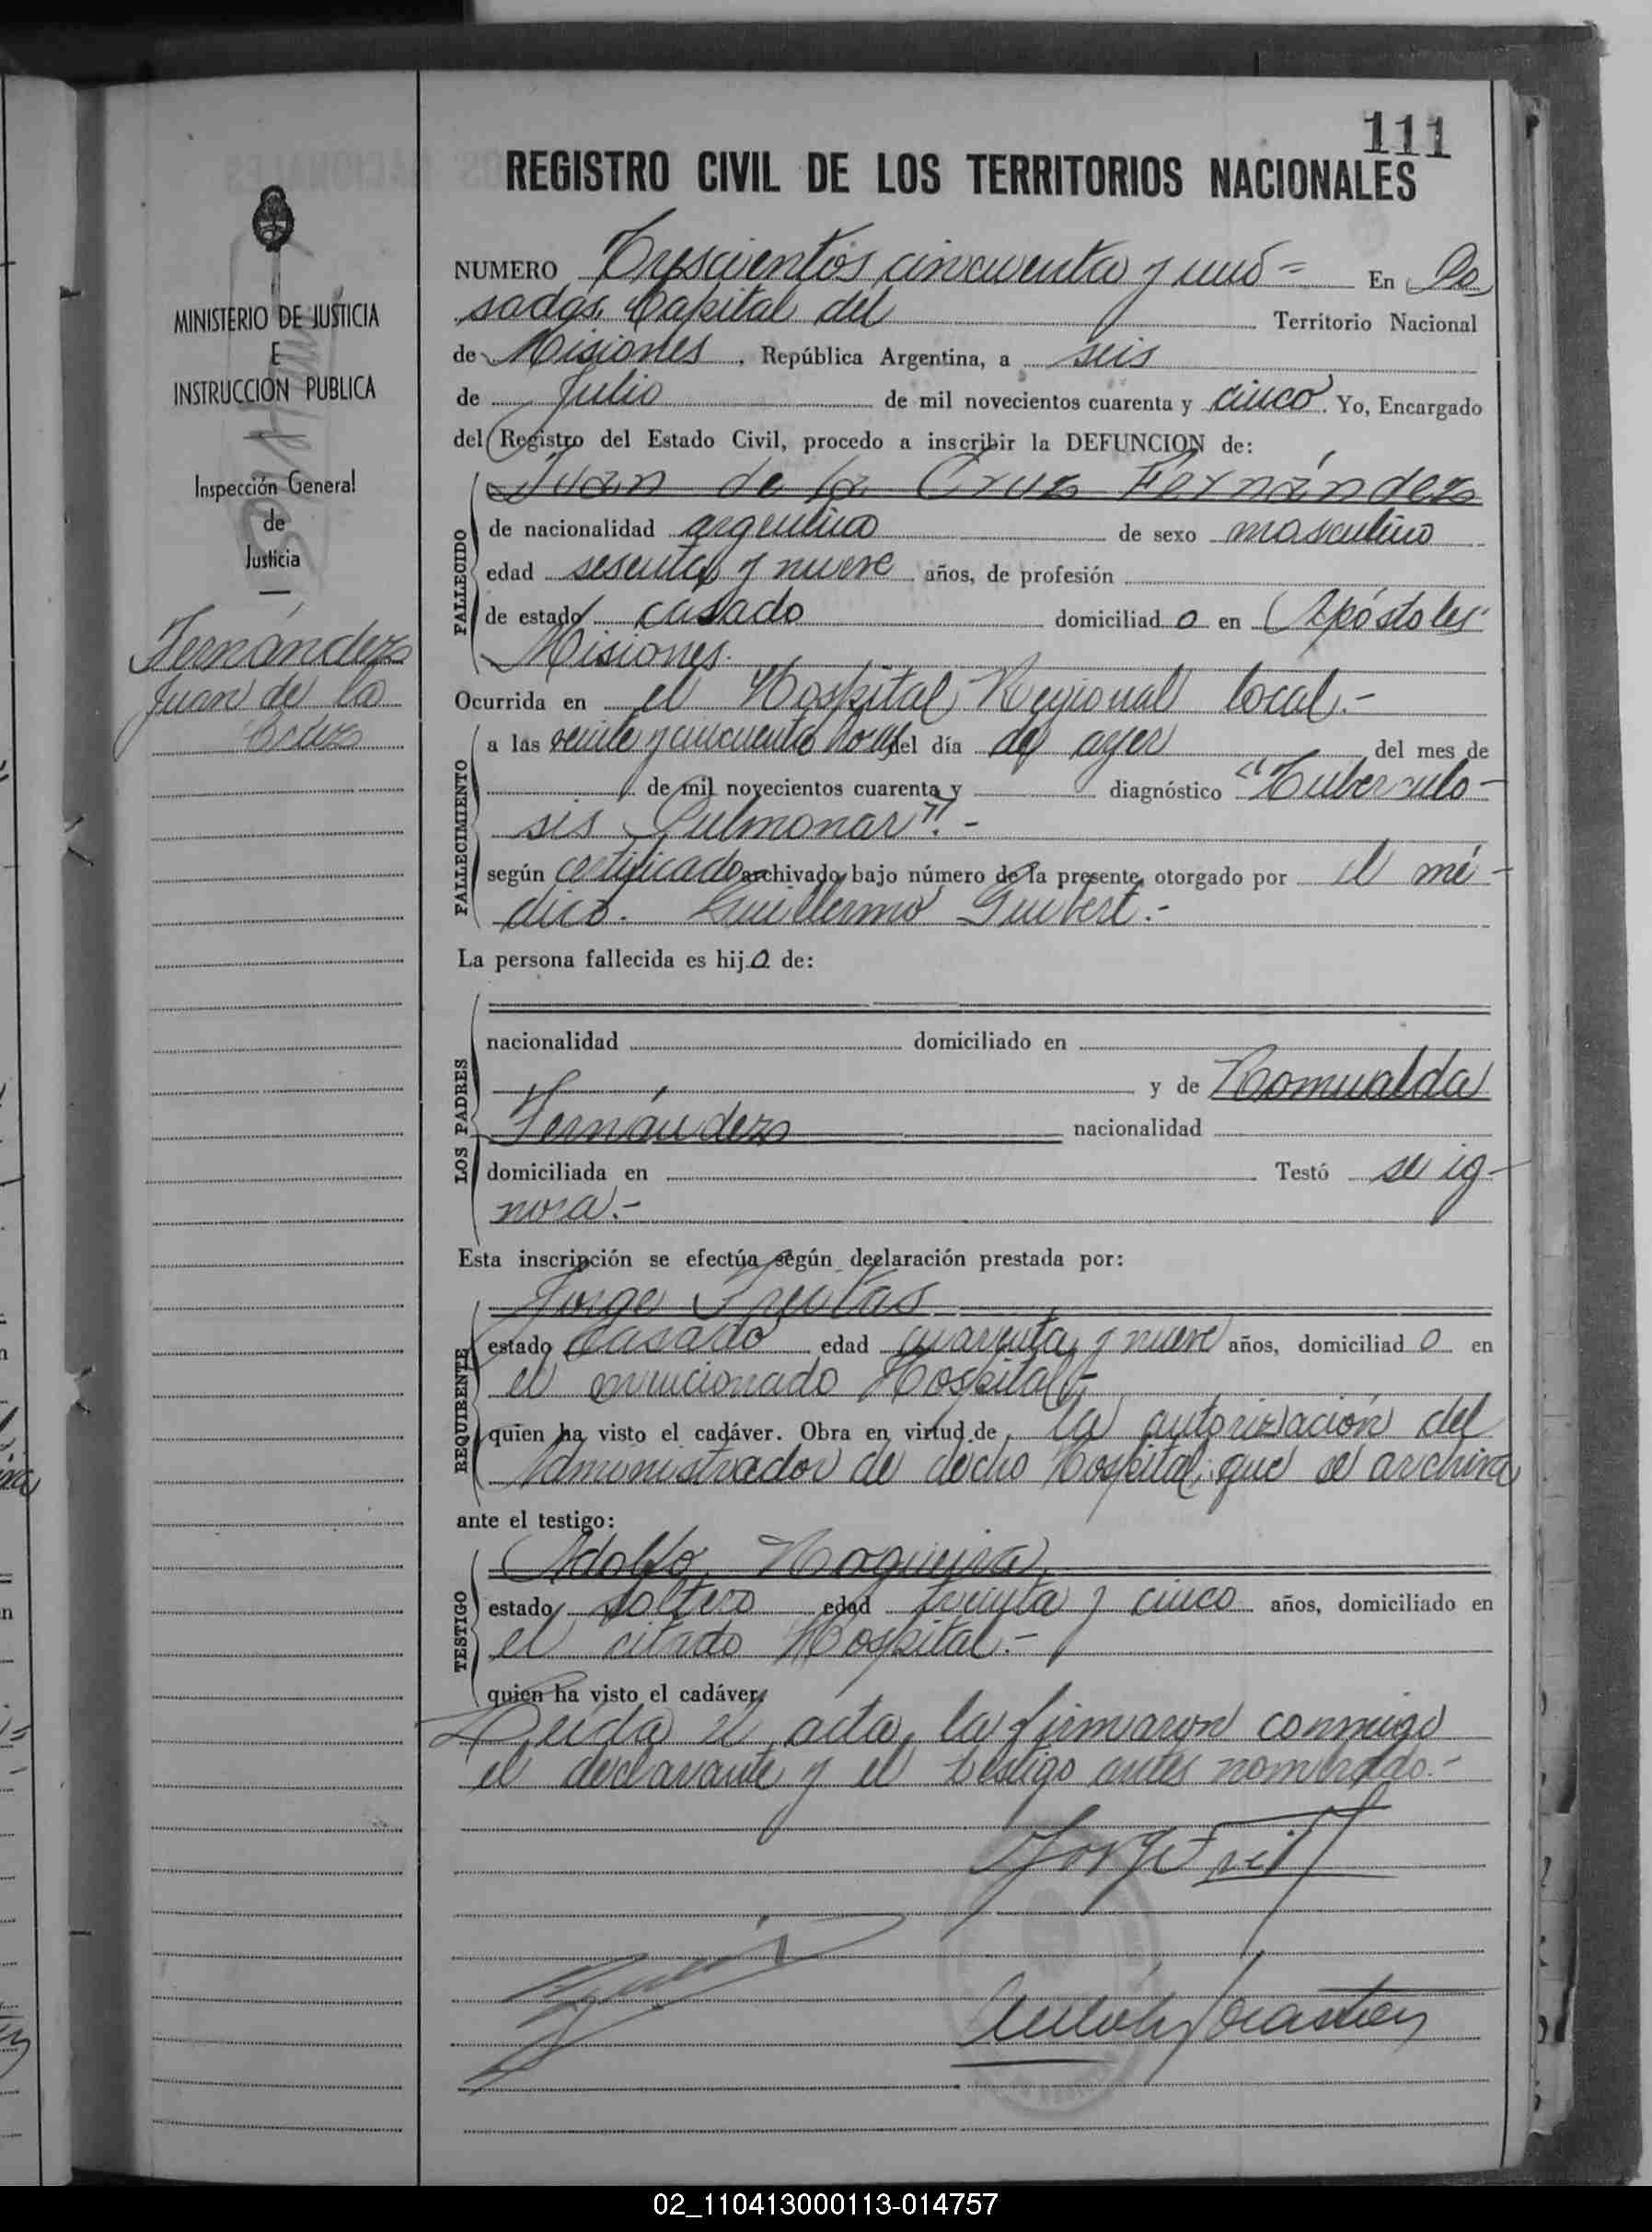 111
REGISTRO CIVIL DE LOS TERRITORIOS NACIONALES
MINISTERIO DE JUSTICIA
E
INSTRUCCION PUBLICA
Inspección General
de
Justicia
Fernández
Juan de la
Cruz
NUMERO Trescientos cincuenta y uno = En Po
sadas, Capital del Territorio Nacional
de Misiones, República Argentina, a seis
de Julio de mil novecientos cuarenta y cinco. Yo, Encargado
del Registro del Estado Civil, procedo a inscribir la DEFUNCION de:
FALLECIDO
Juan de la Cruz Fernández
de nacionalidad argentino de sexo masculino
edad sesenta y nueve años, de profesión
de estado casado domiciliad o en Apóstoles
Misiones.
Ocurrida en el Hospital Regional local.-
FALLECIMIENTO
a las veinte y cincuenta horas del día de ayer del mes de
de mil novecientos cuarenta y diagnóstico "Tuberculo-
sis Pulmonar".-
según certificado archivado bajo número de la presente, otorgado por el mé-
dico. Guillermo Guibert.-
La persona fallecida es hij o de:
LOS PADRES
nacionalidad domiciliado en
y de Romualda
Fernández nacionalidad
domiciliada en Testó se ig-
nora.-
Esta inscripción se efectúa según declaración prestada por:
REQUIRENTE
Jorge Freitas
estado casado edad cuarenta y nueve años, domiciliad o en
el mencionado Hospital,-
quien ha visto el cadáver. Obra en virtud de la autorización del
Administrador de dicho Hospital, que se archiva
ante el testigo:
TESTIGO
Adolfo Nogueira
estado soltero edad treinta y cinco años, domiciliado en
el citado Hospital.-
quien ha visto el cadáver.
Leída el acta, la firmaron conmigo
el declarante y el testigo antes nombrado.-
02_110413000113-014757